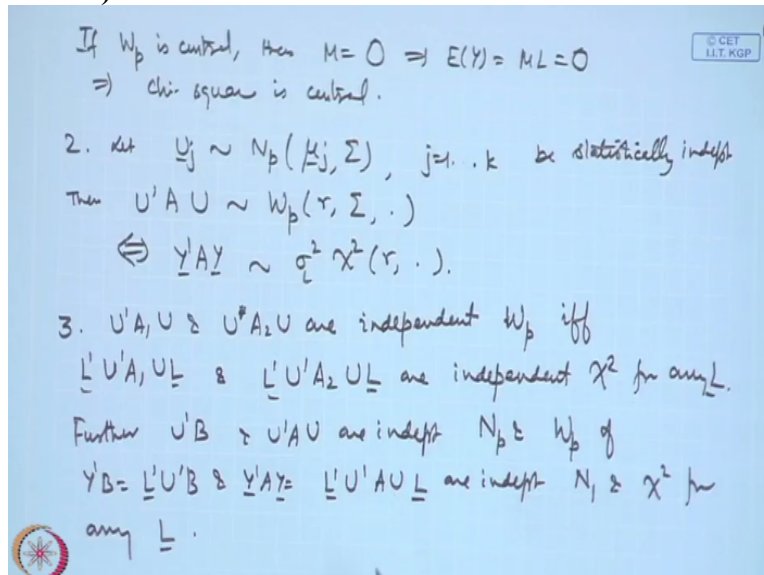 If Wp is central, then M = O ⇒ E(Y) = ML = 0
© CET
I.I.T. KGP
⇒ chi-square is central.
2. Let U̲j ~ Np(μ̲j, Σ), j=1...k be statistically indept
Then U'AU ~ Wp(r, Σ, .)
⇔ Y̲'AY̲ ~ σ_L² χ²(r, .).
3. U'A₁U & U'A₂U are independent Wp iff
L̲'U'A₁UL̲ & L̲'U'A₂UL̲ are independent χ² for any L̲.
Further U'B & U'AU are indept Np & Wp if
Y'B = L̲'U'B & Y̲'AY̲ = L̲'U'AUL̲ are indept N₁ & χ² for
any L̲.